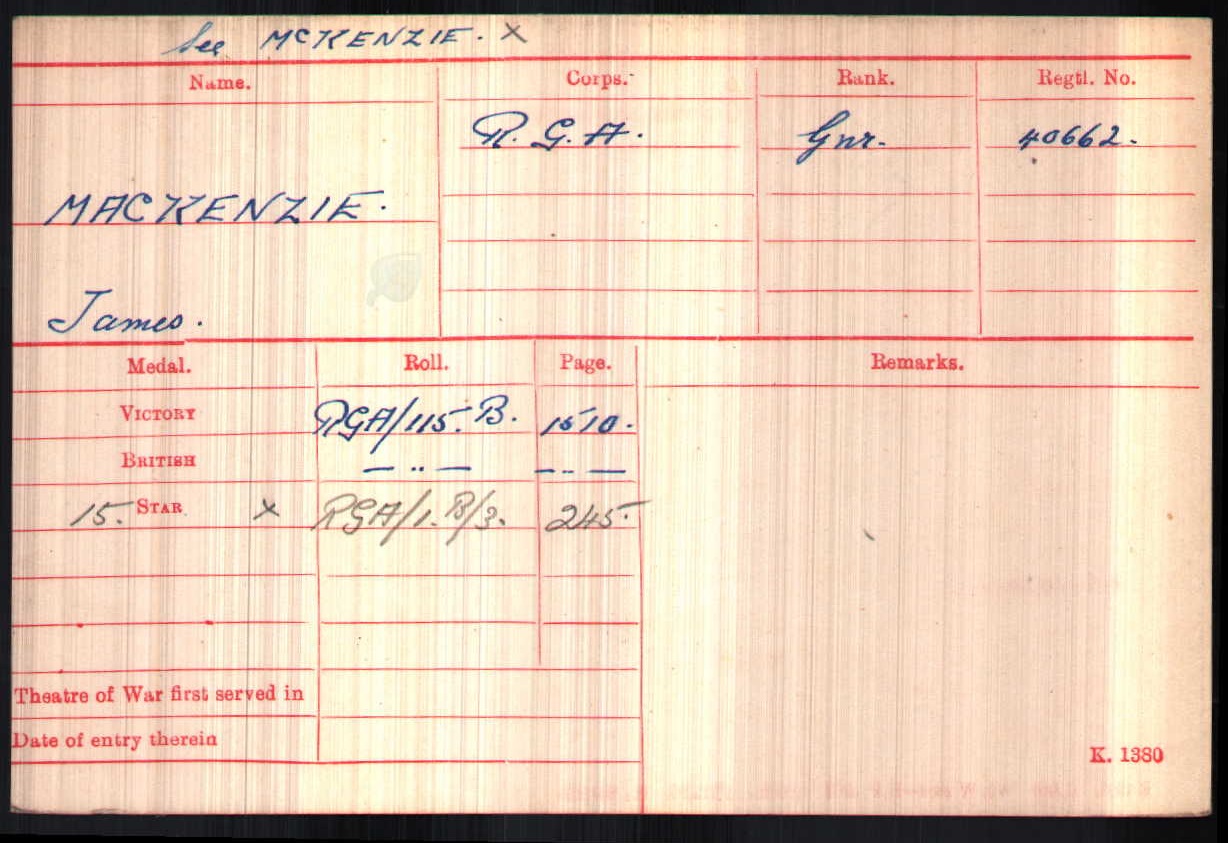 See McKENZIE. X
Name. Corps. Rank. Regtl. No.
R.G.A. Gnr. 40662.
MACKENZIE.
James.
Medal. Roll. Page. Remarks.
VICTORY RGA/115.B. 1510.
BRITISH — ‥ — — ‥ —
15. STAR X RGA/1.B/3. 245.
Theatre of War first served in
Date of entry therein
K. 1380